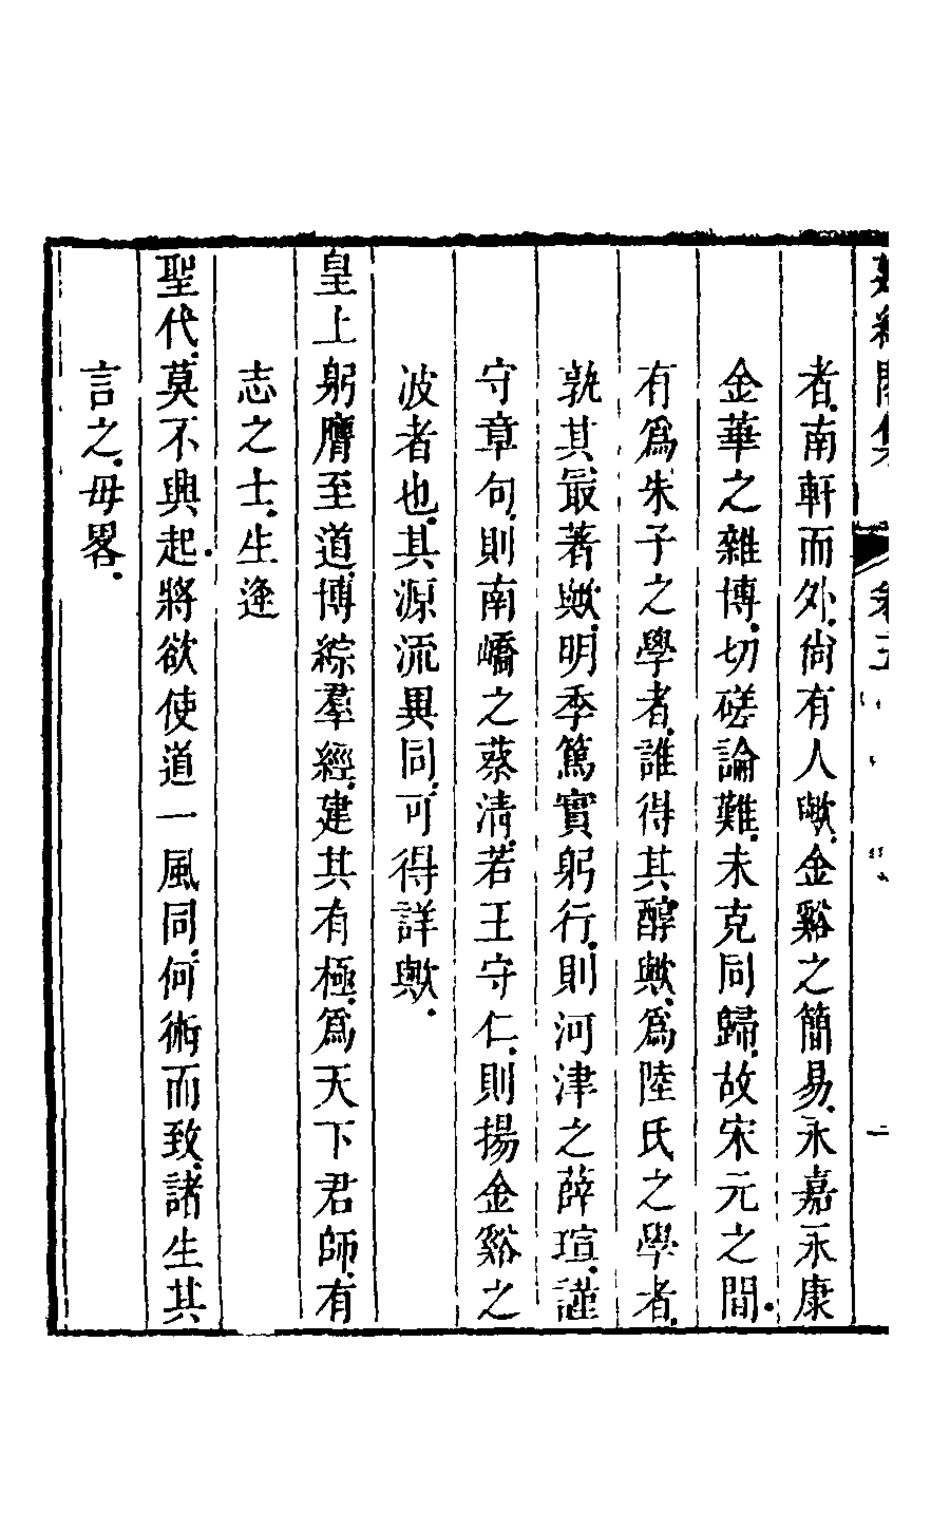 集 卷五
者南軒而外尙有人歟金谿之簡易永嘉永康
金華之雜博切磋論難未克同歸故宋元之間
有爲朱子之學者誰得其醇歟爲陸氏之學者
孰其最著歟明季篤實躬行則河津之薛瑄謹
守章句則南嶠之蔡清若王守仁則揚金谿之
波者也其源流異同可得詳歟
皇上躬膺至道博綜羣經建其有極爲天下君師有
志之士生逢
聖代莫不興起將欲使道一風同何術而致諸生其
言之毋畧